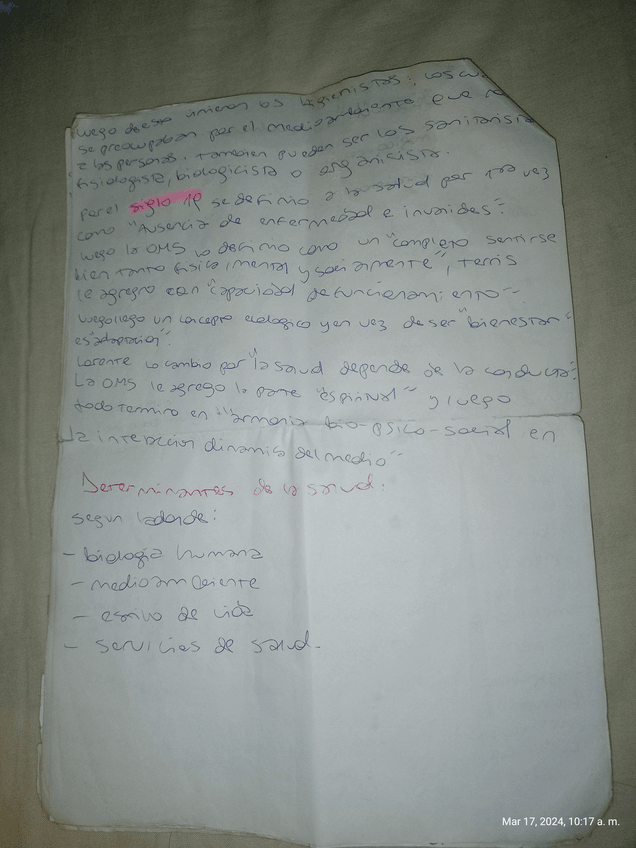 luego de eso vinieron los higienistas: los cu
se preocupaban por el medioambiente que no
a las personas. Tambien pueden ser los sanitarista
fisiologista, biologicista o organicista.
por el siglo 19 se definio a la salud por 1ra vez
como "Ausencia de enfermedad e invalides".
luego la OMS lo definio como un "completo sentirse
bien tanto fisica, mental y socialmente", terris
le agregro con "capacidad de funcionamiento"
luego llego un concepto ecologico y en vez de ser "bienestar"
es "adaptacion".
Lorente lo cambio por "la salud depende de la conducta".
La OMS le agrego la parte "espiritual" y luego
todo termino en "armonia bio-psico-social en
la interaccion dinamica del medio"
Determinantes de la salud.
segun lalonde:
- biologia humana
- medioambiente
- estilo de vida
- servicios de salud.
Mar 17, 2024, 10:17 a. m.